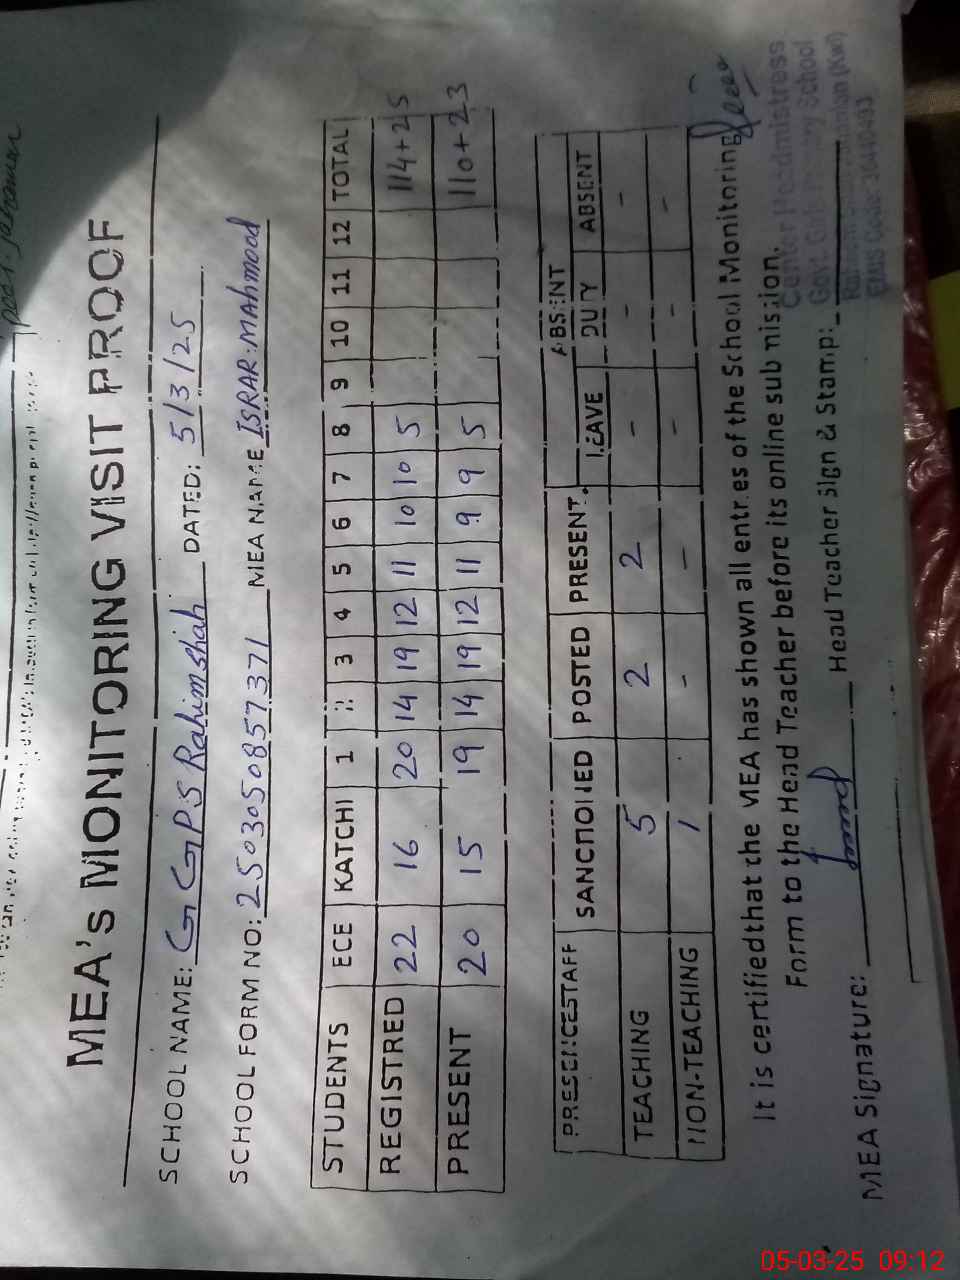 MEA's MONITORING VISIT PROOF
SCHOOL NAME: G G P.S Rahimshah DATED: 5/3/25
SCHOOL FORM NO: 2503050857371 MEA NAME ISRAR.MAHmood
STUDENTS ECE KATCHI 1 2 3 4 5 6 7 8 9 10 11 12 TOTAL
REGISTRED 22 16 20 14 19 12 11 10 10 5 114+25
PRESENT 20 15 19 14 19 12 11 9 9 5 110+23
ABSENT
PRESENCESTAFF SANCTIONED POSTED PRESENT LEAVE DUTY ABSENT
TEACHING 5 2 2 - - -
NON-TEACHING 1 - - - - -
It is certifiedthat the MEA has shown all entries of the School Monitoring
Form to the Head Teacher before its online sub mission.
MEA Signature: Head Teacher Sign & Stamp:
Center Headmistress
Govt. School
05-03-25 09:12